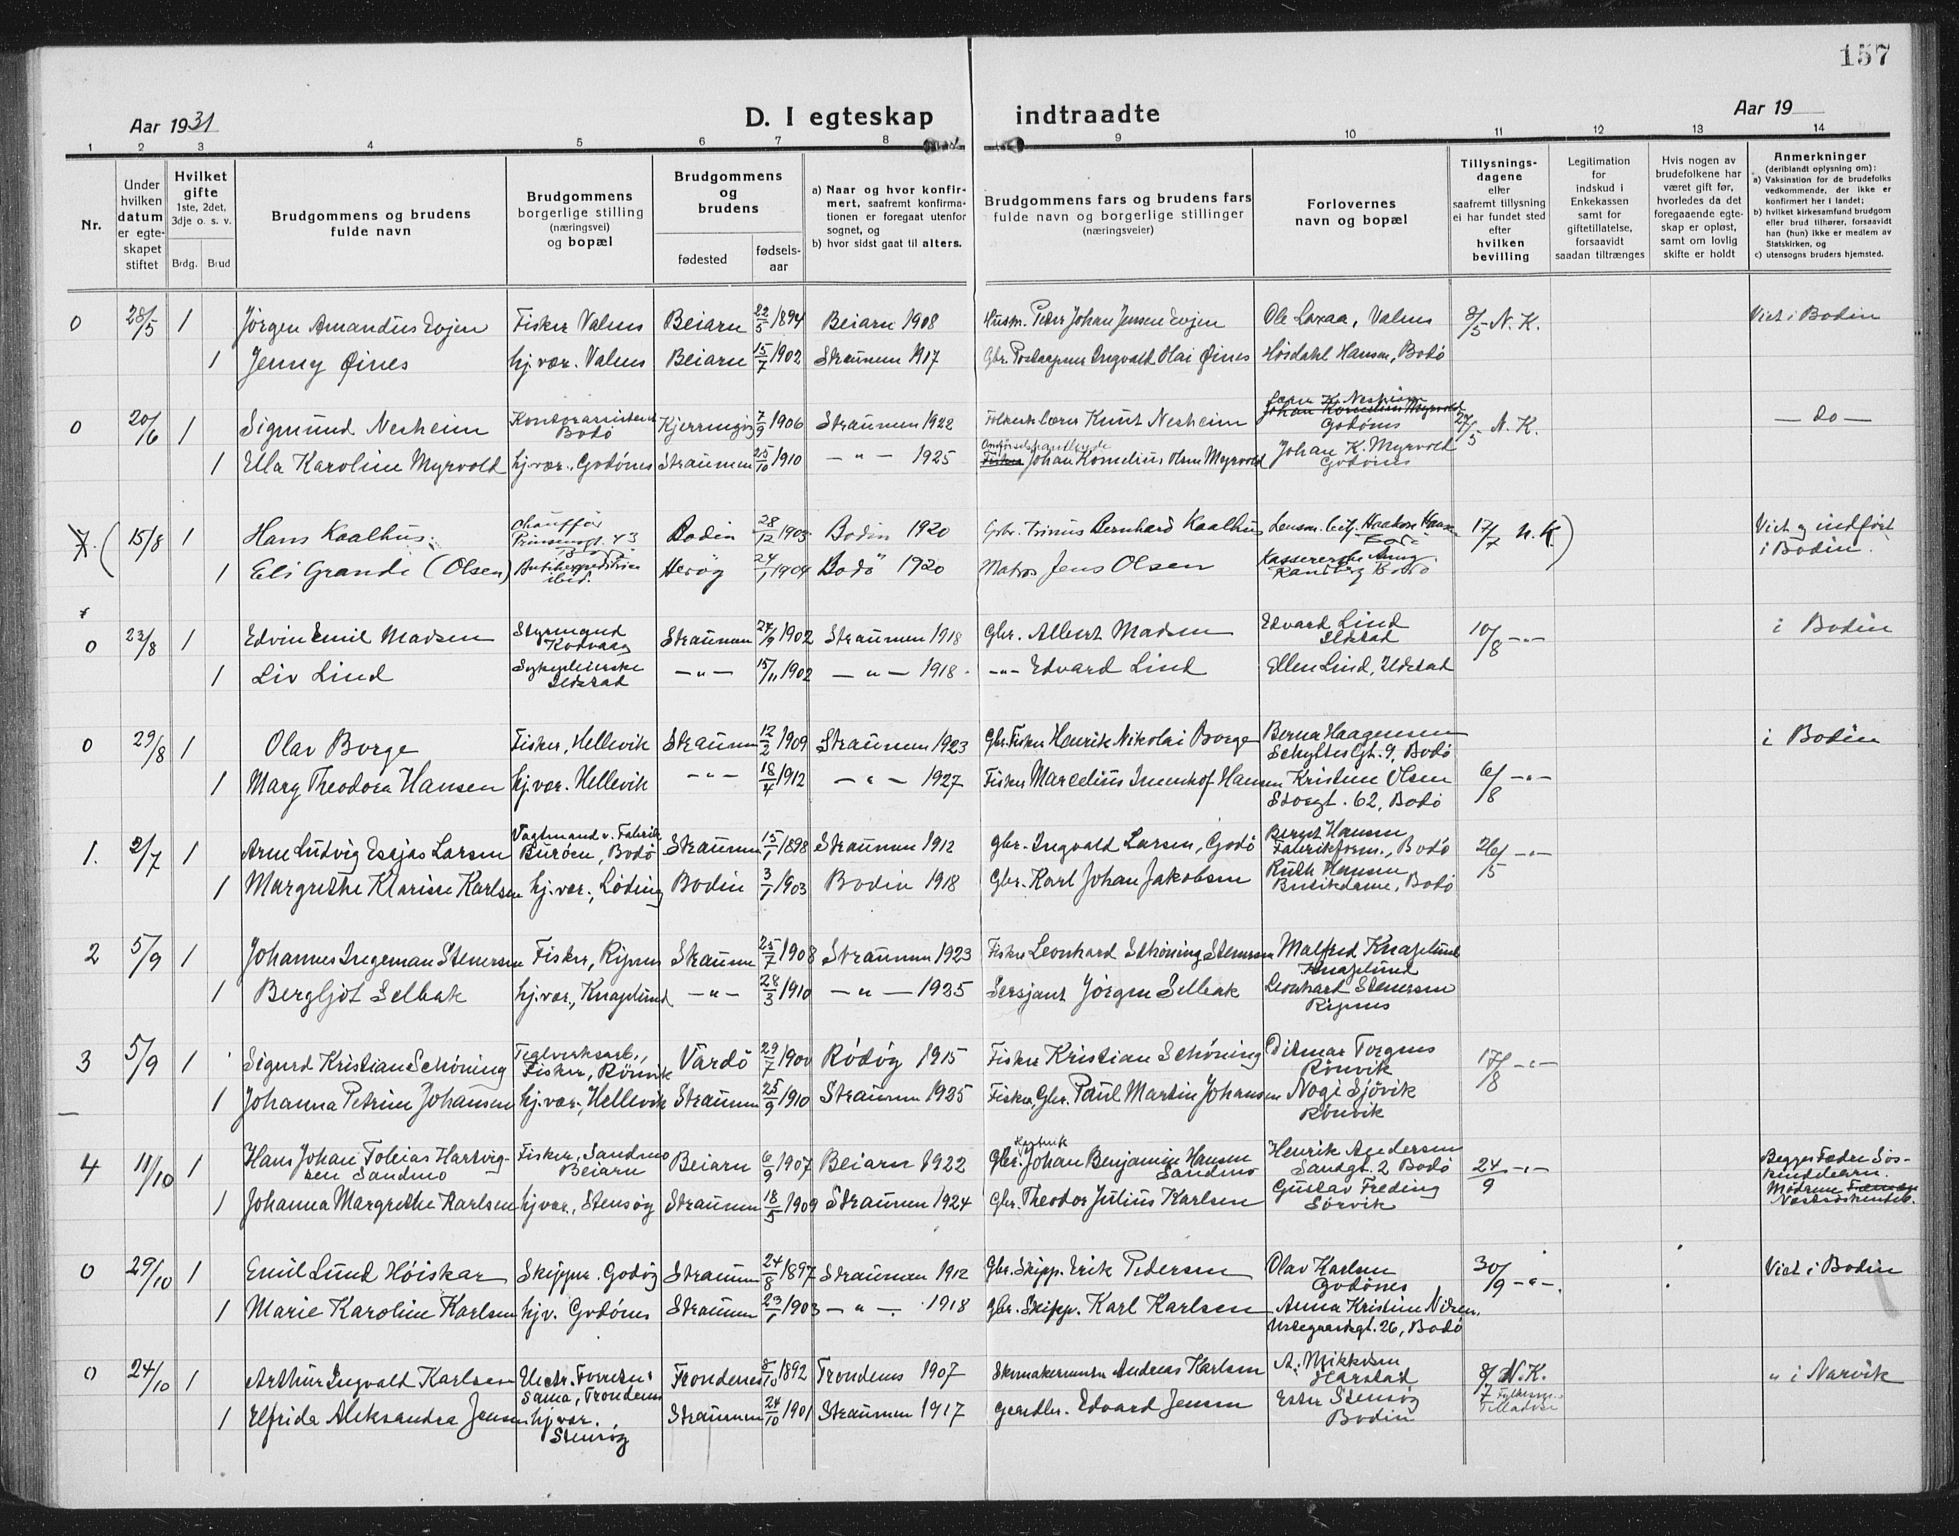 157
Aar 1931
D. I egteskap indtraadte
Aar 19
1 2 3 4 5 6 7 8 9 10 11 12 13 14
Nr.
Under hvilken datum er egteskapet stiftet
Hvilket gifte 1ste, 2det, 3dje o. s. v.
Brdg. Brud
Brudgommens og brudens fulde navn
Brudgommens borgerlige stilling (næringsvei) og bopæl
Brudgommens og brudens
fødested
fødsels-aar
a) Naar og hvor konfirmert, saafremt konfirmationen er foregaat utenfor sognet, og
b) hvor sidst gaat til alters.
Brudgommens fars og brudens fars fulde navn og borgerlige stillinger (næringsveier)
Forlovernes navn og bopæl
Tillysningsdagene eller saafremt tillysning ei har fundet sted efter hvilken bevilling
Legitimation for indskud i Enkekassen samt for giftetillatelse, forsaavidt saadan tiltrænges
Hvis nogen av brudefolkene har været gift før, hvorledes da det foregaaende egteskap er opløst, samt om lovlig skifte er holdt
Anmerkninger (deriblandt oplysning om):
a) Vaksination for de brudefolks vedkommende, der ikke er konfirmert her i landet;
b) hvilket kirkesamfund brudgom eller brud tilhører, forsaavidt han (hun) ikke er medlem av Statskirken, og
c) utensogns bruders hjemsted.
0 28/5 1 Jörgen Amandus Evjen Fisker Valnes Beiarn 22/5 1894 Beiarn 1908 Husm. Peder Johan Jensen Evjen Ole Laxaa, Valnes 8/5 N.K. Viet i Bodin
1 Jenny Øines hj.vær. Valnes Beiarn 15/7 1902 Straumen 1917 Gbr. Postaapner Ingvald Olai Øines Høsdahl Hansen, Bodö
0 20/6 1 Sigmund Nesheim Kontorassistent Bodö Kjerringöy 7/9 1906 Straumen 1922 Folkeskolelærer Knut Nesheim Lærer K. Nesheim Johan Kornelius Myrvold Godönes 27/5 N.K. — do —
1 Ella Karoline Myrvold hj.vær. Godönes Straumen 25/10 1910 — " — 1925 Fisker Johan Kornelius Olsen Myrvold Johan K. Myrvold Godönes
7. ( 15/8 1 Hans Kaalhus Chauffør Prinsensgt. 43 Bodö Bodin 28/12 1903 Bodin 1920 Gbr. Trinus Bernhard Kaalhus Lensm. betj. Haakon Bodö 17/7 N.K.) Viet og indført i Bodin.
1 Eli Grande (Olsen) ibid. Heröy 24/1 1904 Bodö 1920 Matros Jens Olsen Kassererske Randberg Bodö
0 23/8 1 Edvin Emil Madsen Styrmand Kodvaag Straumen 24/9 1902 Straumen 1918 Gbr. Albert Madsen Edvard Lind Ildstad 10/8 — " — i Bodin
1 Liv Lind Sykepleierske Ildstad — " — 15/11 1902 — " — 1918. — " — Edvard Lind Ellen Lind, Ildstad
0 29/8 1 Olav Borge Fisker, Hellevik Straumen 12/2 1909 Straumen 1923 Gbr. Fisker Henrik Nikolai Borge Berna Haagensen Schyttes Gt. 9, Bodö i Bodin
1 Mary Theodora Hansen hj.vær. Hellevik — " — 18/4 1912 — " — 1927 Fisker Marcelius Imenhof Hansen Kristine Olsen Storgt. 62, Bodö 6/8 — " —
1. 2/7 1 Arne Ludvig Esajas Larsen Vagtmand v. Fabrik Burøen, Bodö Straumen 15/1 1898 Straumen 1912 Gbr. Ingvald Larsen, Godö Bernt Hansen Fabrikform., Bodö 26/5 — " —
1 Margrethe Klarisse Karlsen hj.vær., Løding Bodin 3/1 1903 Bodin 1918 Gbr. Karl Johan Jakobsen Ruth Hansen Butikdame, Bodö
2 5/9 1 Johannes Ingeman Stenersen Fisker, Ripnes Straumen 25/7 1908 Straumen 1923 Fisker Leonhard Schöning Stenersen Malfred Knaplund Knaplund
1 Bergljot Selbak hj.vær., Knaplund — " — 28/3 1910 — " — 1925 Sersjant Jörgen Selbak Leonhard Stenersen Ripnes
3 5/9 1 Sigurd Kristian Schöning Teglverksarb., Fisker, Rönvik Vardö 29/7 1900 Rödöy 1915 Fisker Kristian Schöning Ditmar Torgnes Rönvik 17/8 — " —
1 Johanna Petrine Johansen hj.vær., Hellevik Straumen 25/9 1910 Straumen 1925 Fisker, Gbr. Paul Martin Johansen Nogi Sjövik Rönvik
4 11/10 1 Hans Johan Tobias Hartvigsen Sandmo Fisker, Sandmo Beiarn Beiarn 6/9 1907 Beiarn 1922 Gbr. Hartvik Johan Benjamin Hansen Sandmo Henrik Andersen Sandgt. 2 Bodö 24/9 — " — Begges Fædre Søskendebarn. Mødrene Næstsøskendeb.
1 Johanna Margrethe Karlsen hj.vær., Stensøy Straumen 18/5 1909 Straumen 1924 Gbr. Theodor Julius Karlsen Gustav Freding Sörvik
0 29/10 1 Emil Lund Høiskar Skipper. Godöy Straumen 24/8 1897 Straumen 1912 Gbr. Skipp. Erik Pedersen Olav Karlsen Godönes 30/9 — " —. Viet i Bodin
1 Marie Karoline Karlsen hj.v. Godönes Straumen 23/1 1903 — " — . 1918 Gbr. Skipp. Karl Karlsen Anna Kristine Nilsen. 26, Bodö
0 24/10 1 Arthur Ingvald Karlsen Sama, Trondenes Trondenes 8/10 1892 Trondenes 1907 Skomakermester Andreas Karlsen A. Mikkelsen Harstad 8/7 N.K. " i Narvik
1 Elfrida Aleksandra Jensen hj.vær. Stensøy Straumen 24/10 1901 Straumen 1917 Gaardbr. Edvard Jensen Ester Stensøy Bodin